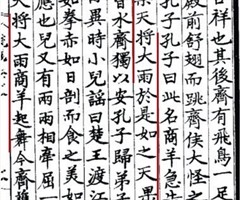 吉祥也其後齊有飛鳥一足
殿前舒翅而跳齊侯大怪之
孔子孔子曰此名商羊急告
渠天將大雨於是如之天果
皆水齊獨以安孔子歸弟子
異時小兒謠曰楚王渡江
如拳赤如日剖而食之美如
應也兒又有兩兩相牽屈一
天將大雨商羊起舞今齊獲